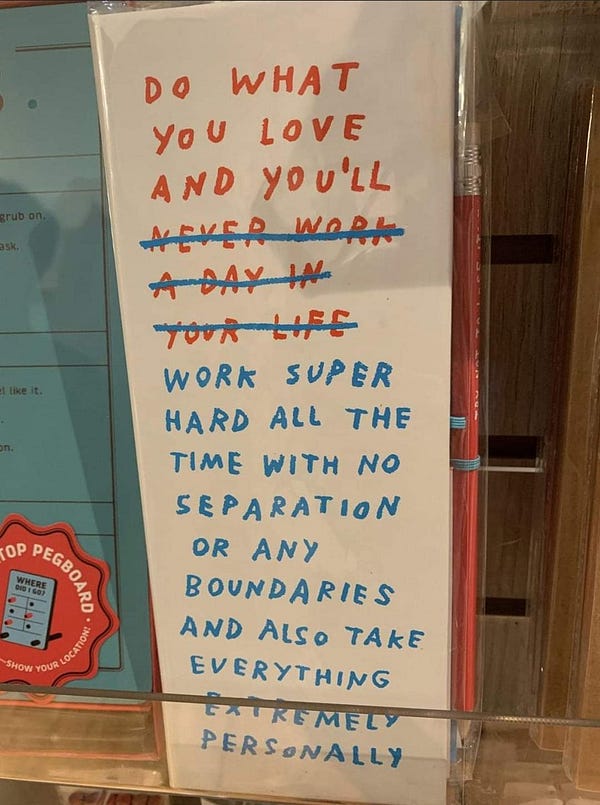 DO WHAT
YOU LOVE
AND YOU'LL
NEVER WORK
A DAY IN
YOUR LIFE
WORK SUPER
HARD ALL THE
TIME WITH NO
SEPARATION
OR ANY
BOUNDARIES
AND ALSO TAKE
EVERYTHING
EXTREMELY
PERSONALLY
grub on.
ask.
like it.
on.
TOP PEGBOARD
WHERE
DID I GO?
SHOW YOUR LOCATION!